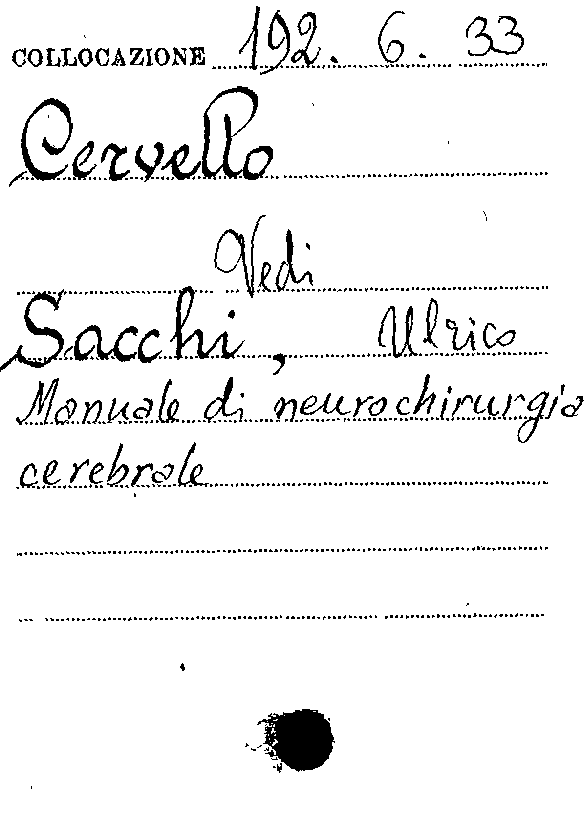 COLLOCAZIONE 192. 6. 33
Cervello
Vedi
Sacchi, Ulrico
Manuale di neurochirurgia
cerebrale